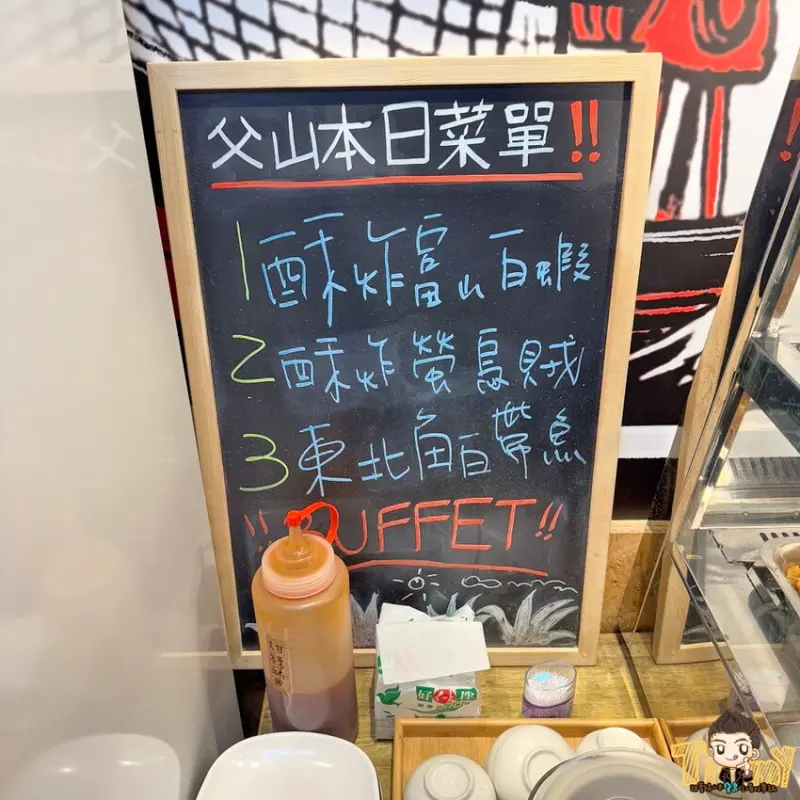 父山本日菜單!!
1 酥炸富山白蝦
2 酥炸螢烏賊
3 東北角白帶魚
!! BUFFET!!